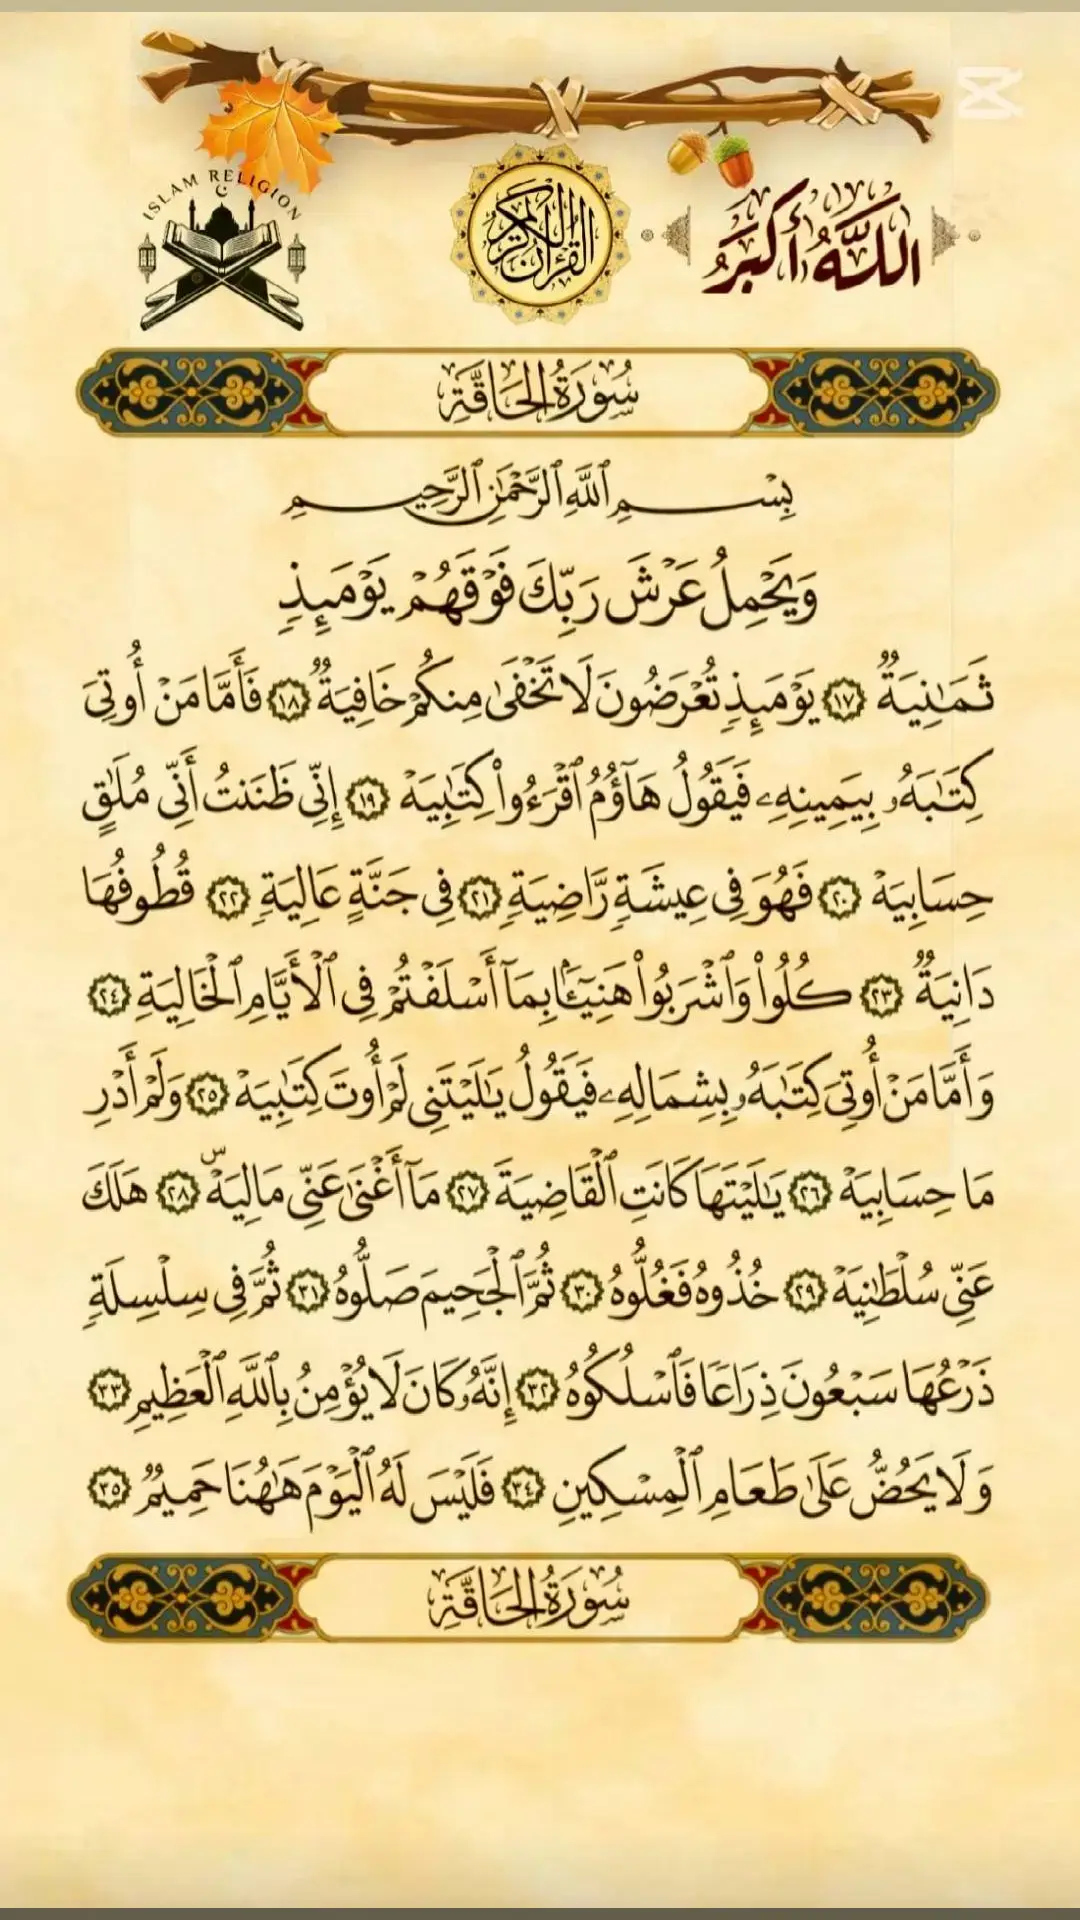 ISLAM RELIGION
القرآن الكريم
اللَّهُ أَكْبَرُ
سُورَةُ الحَاقَّةِ
بِسْمِ ٱللَّهِ ٱلرَّحْمَٰنِ ٱلرَّحِيمِ
وَيَحْمِلُ عَرْشَ رَبِّكَ فَوْقَهُمْ يَوْمَئِذٍ
ثَمَٰنِيَةٌ ١٧ يَوْمَئِذٍ تُعْرَضُونَ لَا تَخْفَىٰ مِنكُمْ خَافِيَةٌ ١٨ فَأَمَّا مَنْ أُوتِىَ
كِتَٰبَهُۥ بِيَمِينِهِۦ فَيَقُولُ هَآؤُمُ ٱقْرَءُوا۟ كِتَٰبِيَهْ ١٩ إِنِّى ظَنَنتُ أَنِّى مُلَٰقٍ
حِسَابِيَهْ ٢٠ فَهُوَ فِى عِيشَةٍ رَّاضِيَةٍ ٢١ فِى جَنَّةٍ عَالِيَةٍ ٢٢ قُطُوفُهَا
دَانِيَةٌ ٢٣ كُلُوا۟ وَٱشْرَبُوا۟ هَنِيٓـًٔۢا بِمَآ أَسْلَفْتُمْ فِى ٱلْأَيَّامِ ٱلْخَالِيَةِ ٢٤
وَأَمَّا مَنْ أُوتِىَ كِتَٰبَهُۥ بِشِمَالِهِۦ فَيَقُولُ يَٰلَيْتَنِى لَمْ أُوتَ كِتَٰبِيَهْ ٢٥ وَلَمْ أَدْرِ
مَا حِسَابِيَهْ ٢٦ يَٰلَيْتَهَا كَانَتِ ٱلْقَاضِيَةَ ٢٧ مَآ أَغْنَىٰ عَنِّى مَالِيَهْۜ ٢٨ هَلَكَ
عَنِّى سُلْطَٰنِيَهْ ٢٩ خُذُوهُ فَغُلُّوهُ ٣٠ ثُمَّ ٱلْجَحِيمَ صَلُّوهُ ٣١ ثُمَّ فِى سِلْسِلَةٍ
ذَرْعُهَا سَبْعُونَ ذِرَاعًا فَٱسْلُكُوهُ ٣٢ إِنَّهُۥ كَانَ لَا يُؤْمِنُ بِٱللَّهِ ٱلْعَظِيمِ ٣٣
وَلَا يَحُضُّ عَلَىٰ طَعَامِ ٱلْمِسْكِينِ ٣٤ فَلَيْسَ لَهُ ٱلْيَوْمَ هَٰهُنَا حَمِيمٌ ٣٥
سُورَةُ الحَاقَّةِ